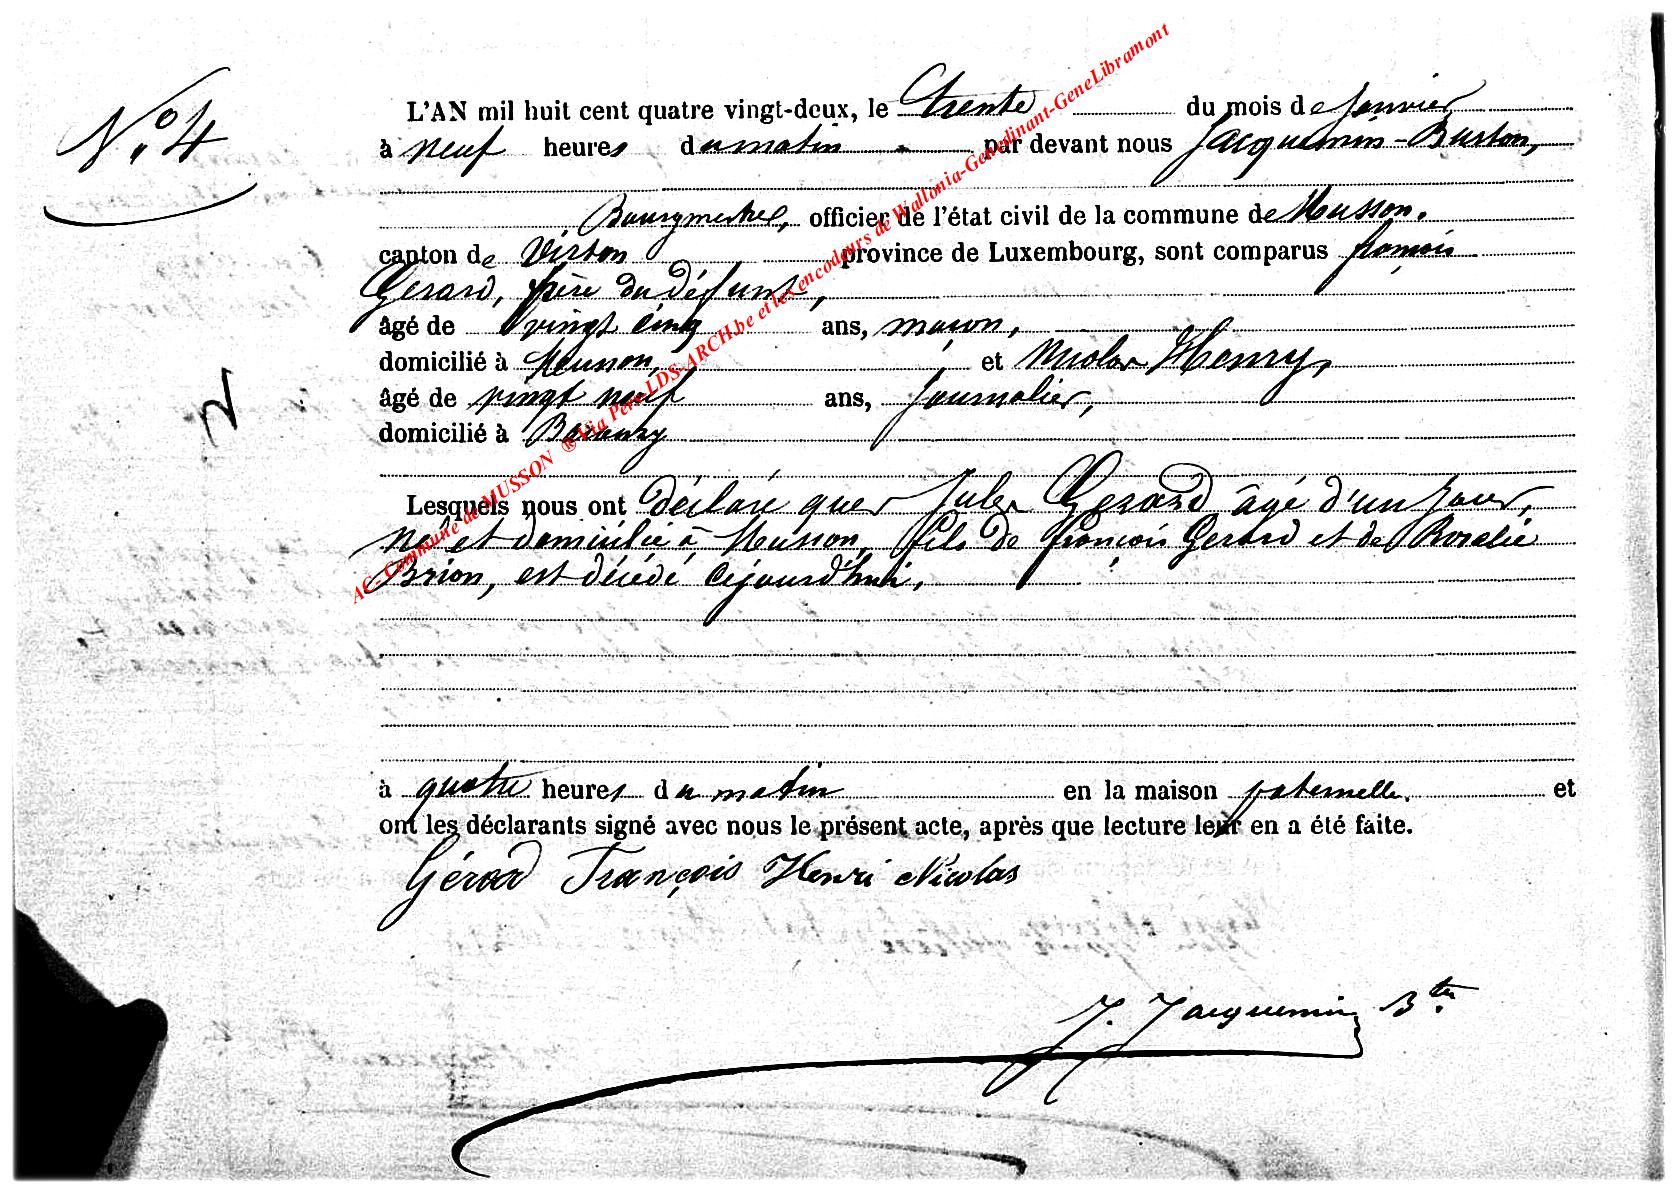 N° 4
L'AN mil huit cent quatre vingt-deux, le trente du mois de Janvier
à neuf heures du matin par devant nous Jacquemin-Burton,
Bourgmestre, officier de l'état civil de la commune de Musson.
canton de Virton province de Luxembourg, sont comparus françois
Gerard, frère du défunt,
âgé de vingt cinq ans, maçon,
domicilié à Musson, et Nicolas Henry,
âgé de vingt neuf ans, journalier,
domicilié à Baranzy
Lesquels nous ont déclaré que Jules Gerard âgé d'un jour,
né et domicilié à Musson, fils de françois Gerard et de Rosalie
Brion, est décédé cejourd'hui,
à quatre heures du matin en la maison paternelle. et
ont les déclarants signé avec nous le présent acte, après que lecture leur en a été faite.
Gérard François Henri Nicolas
J. Jacquemin Btn
AC- Commune de MUSSON ® Via Père LDS-ARCH.be et les encodeurs de Wallonia-Genedinant-GeneLibramont